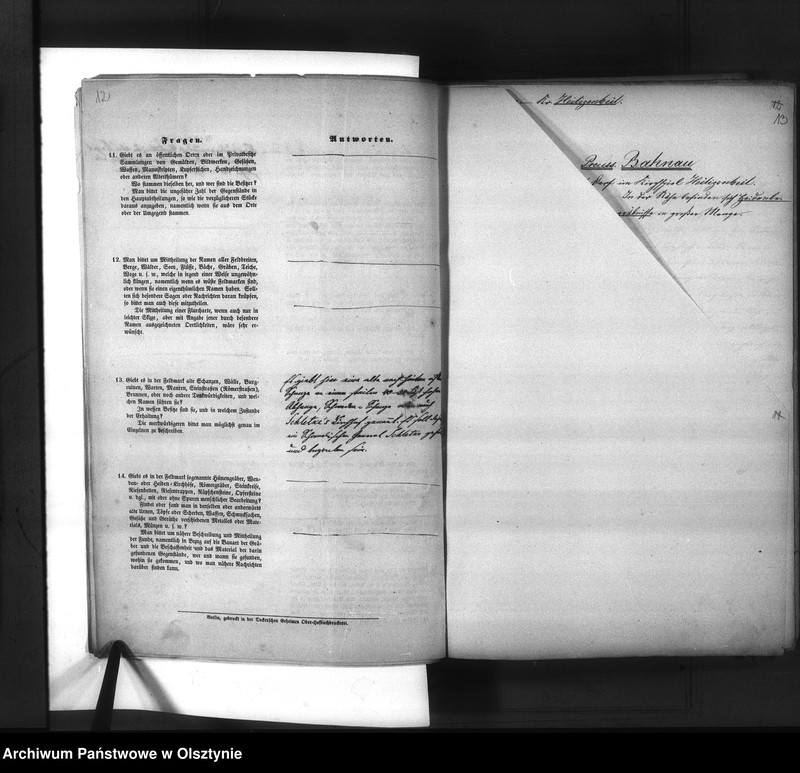 12
Fragen.
Antworten.
11. Giebt es an öffentlichen Orten oder im Privatbesitze
Sammlungen von Gemälden, Bildwerken, Gefäßen,
Waffen, Manuskripten, Kupferstichen, Handzeichnungen
oder anderen Alterthümern?
Wo stammen dieselben her, und wer sind die Besitzer?
Man bittet die ungefähre Zahl der Gegenstände in
den Hauptabtheilungen, so wie die vorzüglicheren Stücke
daraus anzugeben, namentlich wenn sie aus dem Orte
oder der Umgegend stammen.
12. Man bittet um Mittheilung der Namen aller Feldbreiten,
Berge, Wälder, Seen, Flüsse, Bäche, Gräben, Teiche,
Wege u. s. w., welche in irgend einer Weise ungewöhn-
lich klingen, namentlich wenn es wüste Feldmarken sind,
oder wenn sie einen eigenthümlichen Namen haben. Soll-
ten sich besondere Sagen oder Nachrichten daran knüpfen,
so bittet man auch diese mitzutheilen.
Die Mittheilung einer Flurcharte, wenn auch nur in
leichter Skizze, aber mit Angabe jener durch besondere
Namen ausgezeichneten Oertlichkeiten, wäre sehr er-
wünscht.
13. Giebt es in der Feldmark alte Schanzen, Wälle, Burg-
ruinen, Warten, Mauern, Steinstraßen (Römerstraßen),
Brunnen, oder noch andere Denkwürdigkeiten, und wel-
chen Namen führen sie?
In wessen Besitz sind sie, und in welchem Zustande
der Erhaltung?
Die merkwürdigeren bittet man möglichst genau im
Einzelnen zu beschreiben.
Es giebt hier eine alte
Schanze an einem steilen
Abhange, Schweden-Schanze
genannt. Es soll
ein Schwedischer General
und begraben sein.
14. Giebt es in der Feldmark sogenannte Hünengräber, Wen-
den- oder Heiden-Kirchhöfe, Römergräber, Steinkreise,
Riesenbetten, Riesentreppen, Näpfchensteine, Opfersteine
u. dgl., mit oder ohne Spuren menschlicher Bearbeitung?
Findet oder fand man in denselben oder anderwärts
alte Urnen, Töpfe oder Scherben, Waffen, Schmucksachen,
Gefäße und Geräthe verschiedenen Metalles oder Mate-
rials, Münzen u. s. w.?
Man bittet um nähere Beschreibung und Mittheilung
der Funde, namentlich in Bezug auf die Bauart der Grä-
ber und die Beschaffenheit und das Material der darin
gefundenen Gegenstände, wer und wann sie gefunden,
wohin sie gekommen, und wo man nähere Nachrichten
darüber finden kann.
Berlin, gedruckt in der Deckerschen Geheimen Ober-Hofbuchdruckerei.
Kr Heiligenbeil.
13
Preuss Bahnau
Dorf im Kirchspiel Heiligenbeil.
In der Nähe befinden sich Heidenbe-
gräbnisse in großer Menge
Archiwum Państwowe w Olsztynie